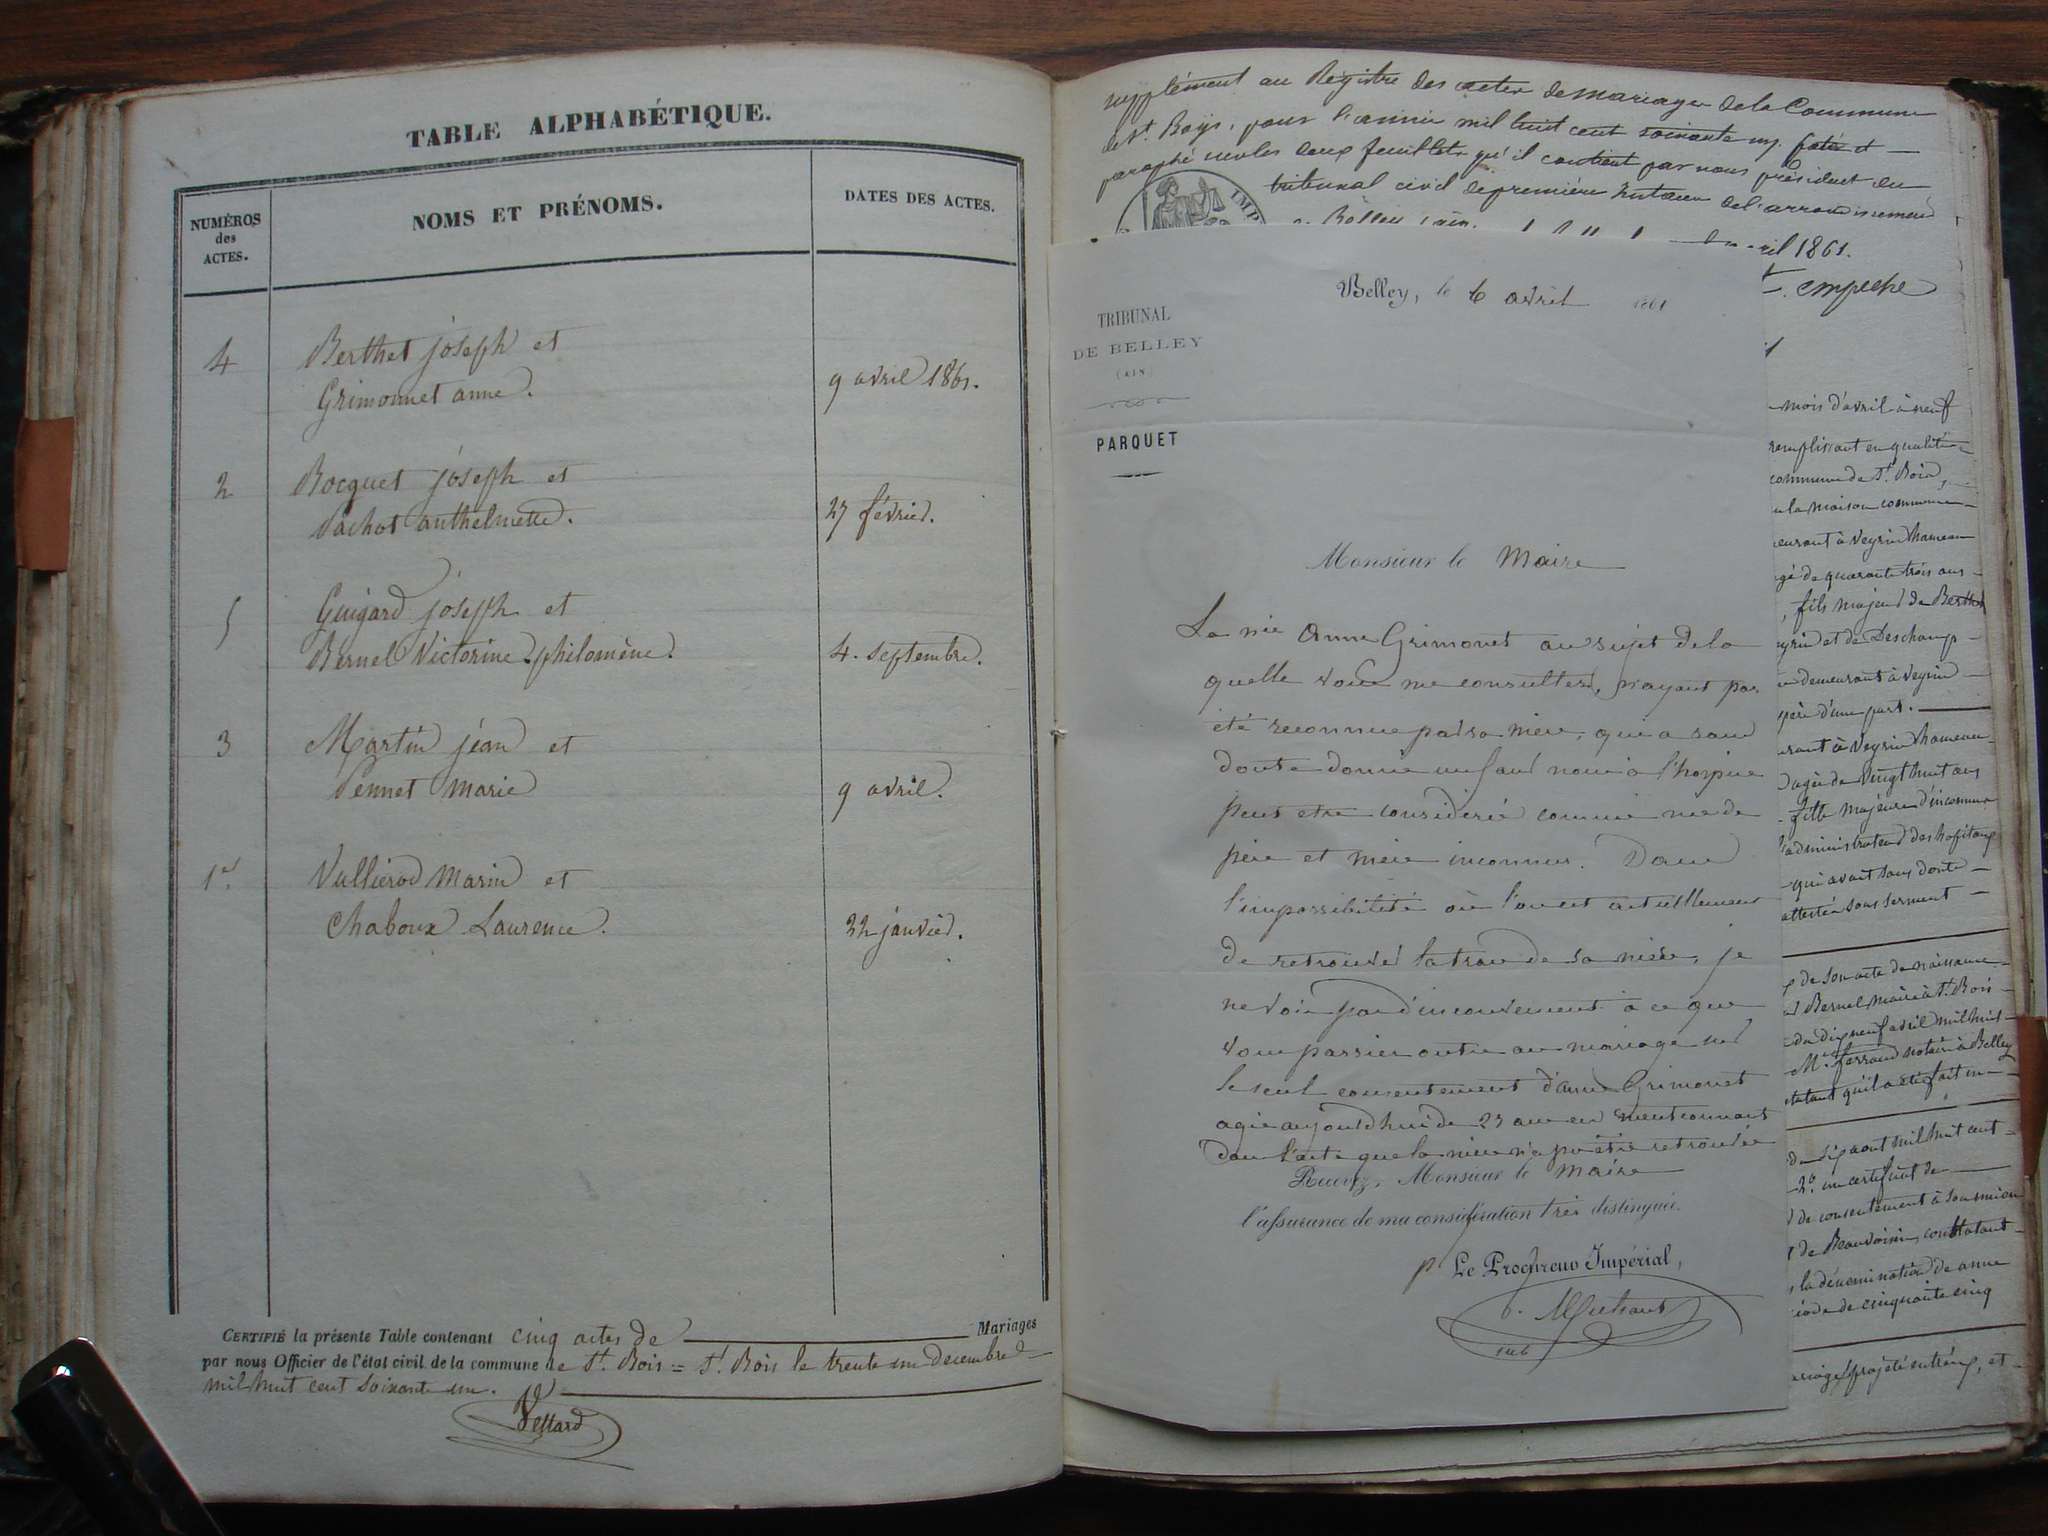 TABLE ALPHABÉTIQUE.
NUMÉROS
des
ACTES.
NOMS ET PRÉNOMS.
DATES DES ACTES.
4
Berthet joseph et
Grimonnet anne.
9 avril 1861.
2
Bocquet joseph et
Vachot anthelmette.
27 février.
5
Guigard joseph et
Bernel Victorine philomène.
4. septembre.
3
Martin jean et
Pennet Marie
9 avril.
1er
Vullierod Marin et
Chaboux Laurence.
22 janvier.
CERTIFIÉ la présente Table contenant cinq actes de Mariages
par nous Officier de l'état civil de la commune de St. Bois = St. Bois le trente un decembre
mil huit cent soixante un.
supplément au Registre des actes de mariages de la Commune
de St. Boys, pour l'année mil huit cent soixante un, coté et
paraphé sur les deux feuillets qu'il contient par nous président du
tribunal civil de première instance de l'arrondissement
avril 1861.
empeché
Belley, le 6 avril 1861
TRIBUNAL
DE BELLEY
(AIN)
PARQUET
Monsieur le Maire
La née Anne Grimonet au sujet de la
quelle vous me consultez, n'ayant pas
été reconnue par sa mère, qui a sans
doute donné un faux nom à l'hospice
peut etre considérée comme née de
père et mère inconnus. Dans
l'impossibilité où l'on est actuellement
de retrouver la trace de sa mère, je
ne vois pas d'inconvenient à ce que
vous passiez outre au mariage sur
le seul consentement d'anne Grimonet
agée aujourd'hui de 27 ans en mentionnant
dans l'acte que la mère n'a pu être retrouvée
Recevez, Monsieur le Maire
l'assurance de ma considération très distinguée.
p Le Procureur Impérial,
mois d'avril à neuf
remplissant en qualité
commune de St. Bois,
la maison commune
à Veyrin hameau
de quarante trois ans
fils majeur de Berthet
et de Deschamp
demeurant à Veyrin
père d'une part.
à Veyrin hameau
agée de vingt huit ans
fille majeure d'inconnus
administrateur des hopitaux
qui avait sans doute
attestée sous serment
de son acte de naissance
Bernel maire à St. Bois
du dix neuf avril mil huit
M. ferrand notaire à Belley
qu'il a été fait
août mil huit cent
2°. un certificat de
de consentement à son union
de Beauvoisin, constatant
la dénomination de anne
de cinquante cinq
projeté entr'eux, et